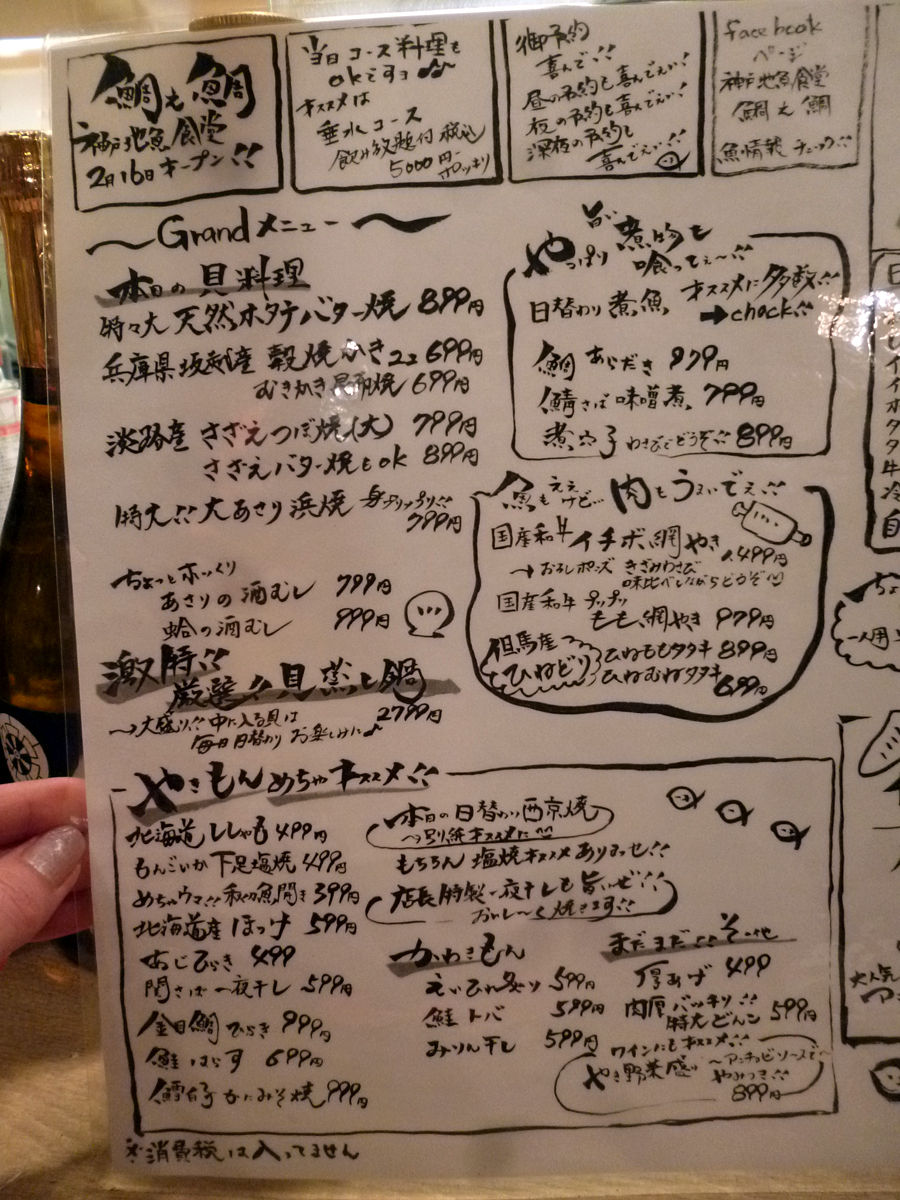 鯛も鯛
神戸地魚食堂
2月16日オープン!!
当日コース料理も
okですョ♪
オススメは
垂水コース
飲み放題付 税込
5000円ポッキリ
御予約
喜んで!!
昼の予約も喜んでぇい!
夜の予約も喜んでぇい!
深夜の予約も
喜んでぇい!!
facebook
ページ
神戸地魚食堂
鯛も鯛
魚情報 チェック!!
〜Grandメニュー〜
本日の貝料理
特々大 天然ホタテバター焼 899円
兵庫県坂越産 殻焼かき2コ 699円
むきかき昆布焼 699円
淡路産 さざえつぼ焼(大) 799円
さざえバター焼もok 899円
特大!!大あさり浜焼 身プリップリ!!
799円
ちょっとホッくり
あさりの酒むし 799円
蛤の酒むし 999円
激特!!
厳選!!貝蒸し鍋
2799円
→大盛り!!中に入る貝は
毎日日替わり お楽しみに♪
やっぱり旨い煮物も
喰ってぇ〜!!
日替わり煮魚 オススメに多数!!
➡chock!!
鯛 あらだき 979円
鯖さば味噌煮 799円
煮穴子 わさびでどうぞ!! 899円
魚もええけど… 肉もうまいでぇ!!
国産和牛 イチボ網やき
1,499円
→おろしポン酢 きざみわさび
味比べしながらどうぞ
国産和牛 プリップリ
もも網やき 979円
但馬産
ひねどり
ひねももタタキ 899円
ひねむねタタキ 699円
やきもん めちゃオススメ!!
北海道ししゃも 499円
もんごいか下足塩焼 499円
めちゃウマ!! 399円
北海道産ほっけ 599円
あじひらき 499
開さば一夜干し 599円
金目鯛ひらき 999円
鮭はらす 699円
かにみそ焼 999円
本日の日替わり西京焼
もちろん 塩焼オススメありまっせ!!
店長特製一夜干しも旨いぜ!!
おいし〜く焼きます!!
かわきもん
えいひれ炙り 599円
鮭トバ 599円
みりん干し 599円
まだまだ!!その他
厚あげ 499
肉厚バッキリ!!
特大どんこ 599円
ワインにもオススメ!!
やき野菜盛り 〜アンチョビソースで〜
やみつき!!
899円
※消費税は入ってません